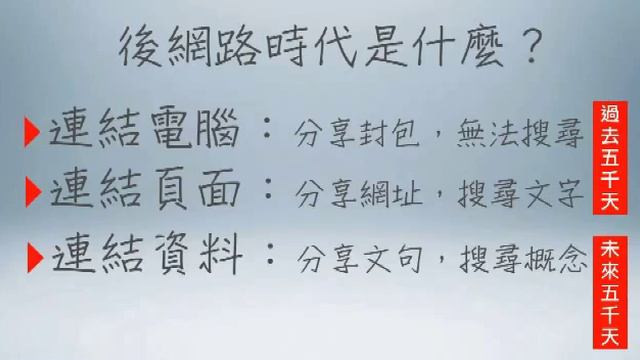 後網路時代是什麼？
連結電腦：分享封包，無法搜尋
連結頁面：分享網址，搜尋文字
過去五千天
連結資料：分享文句，搜尋概念
未來五千天